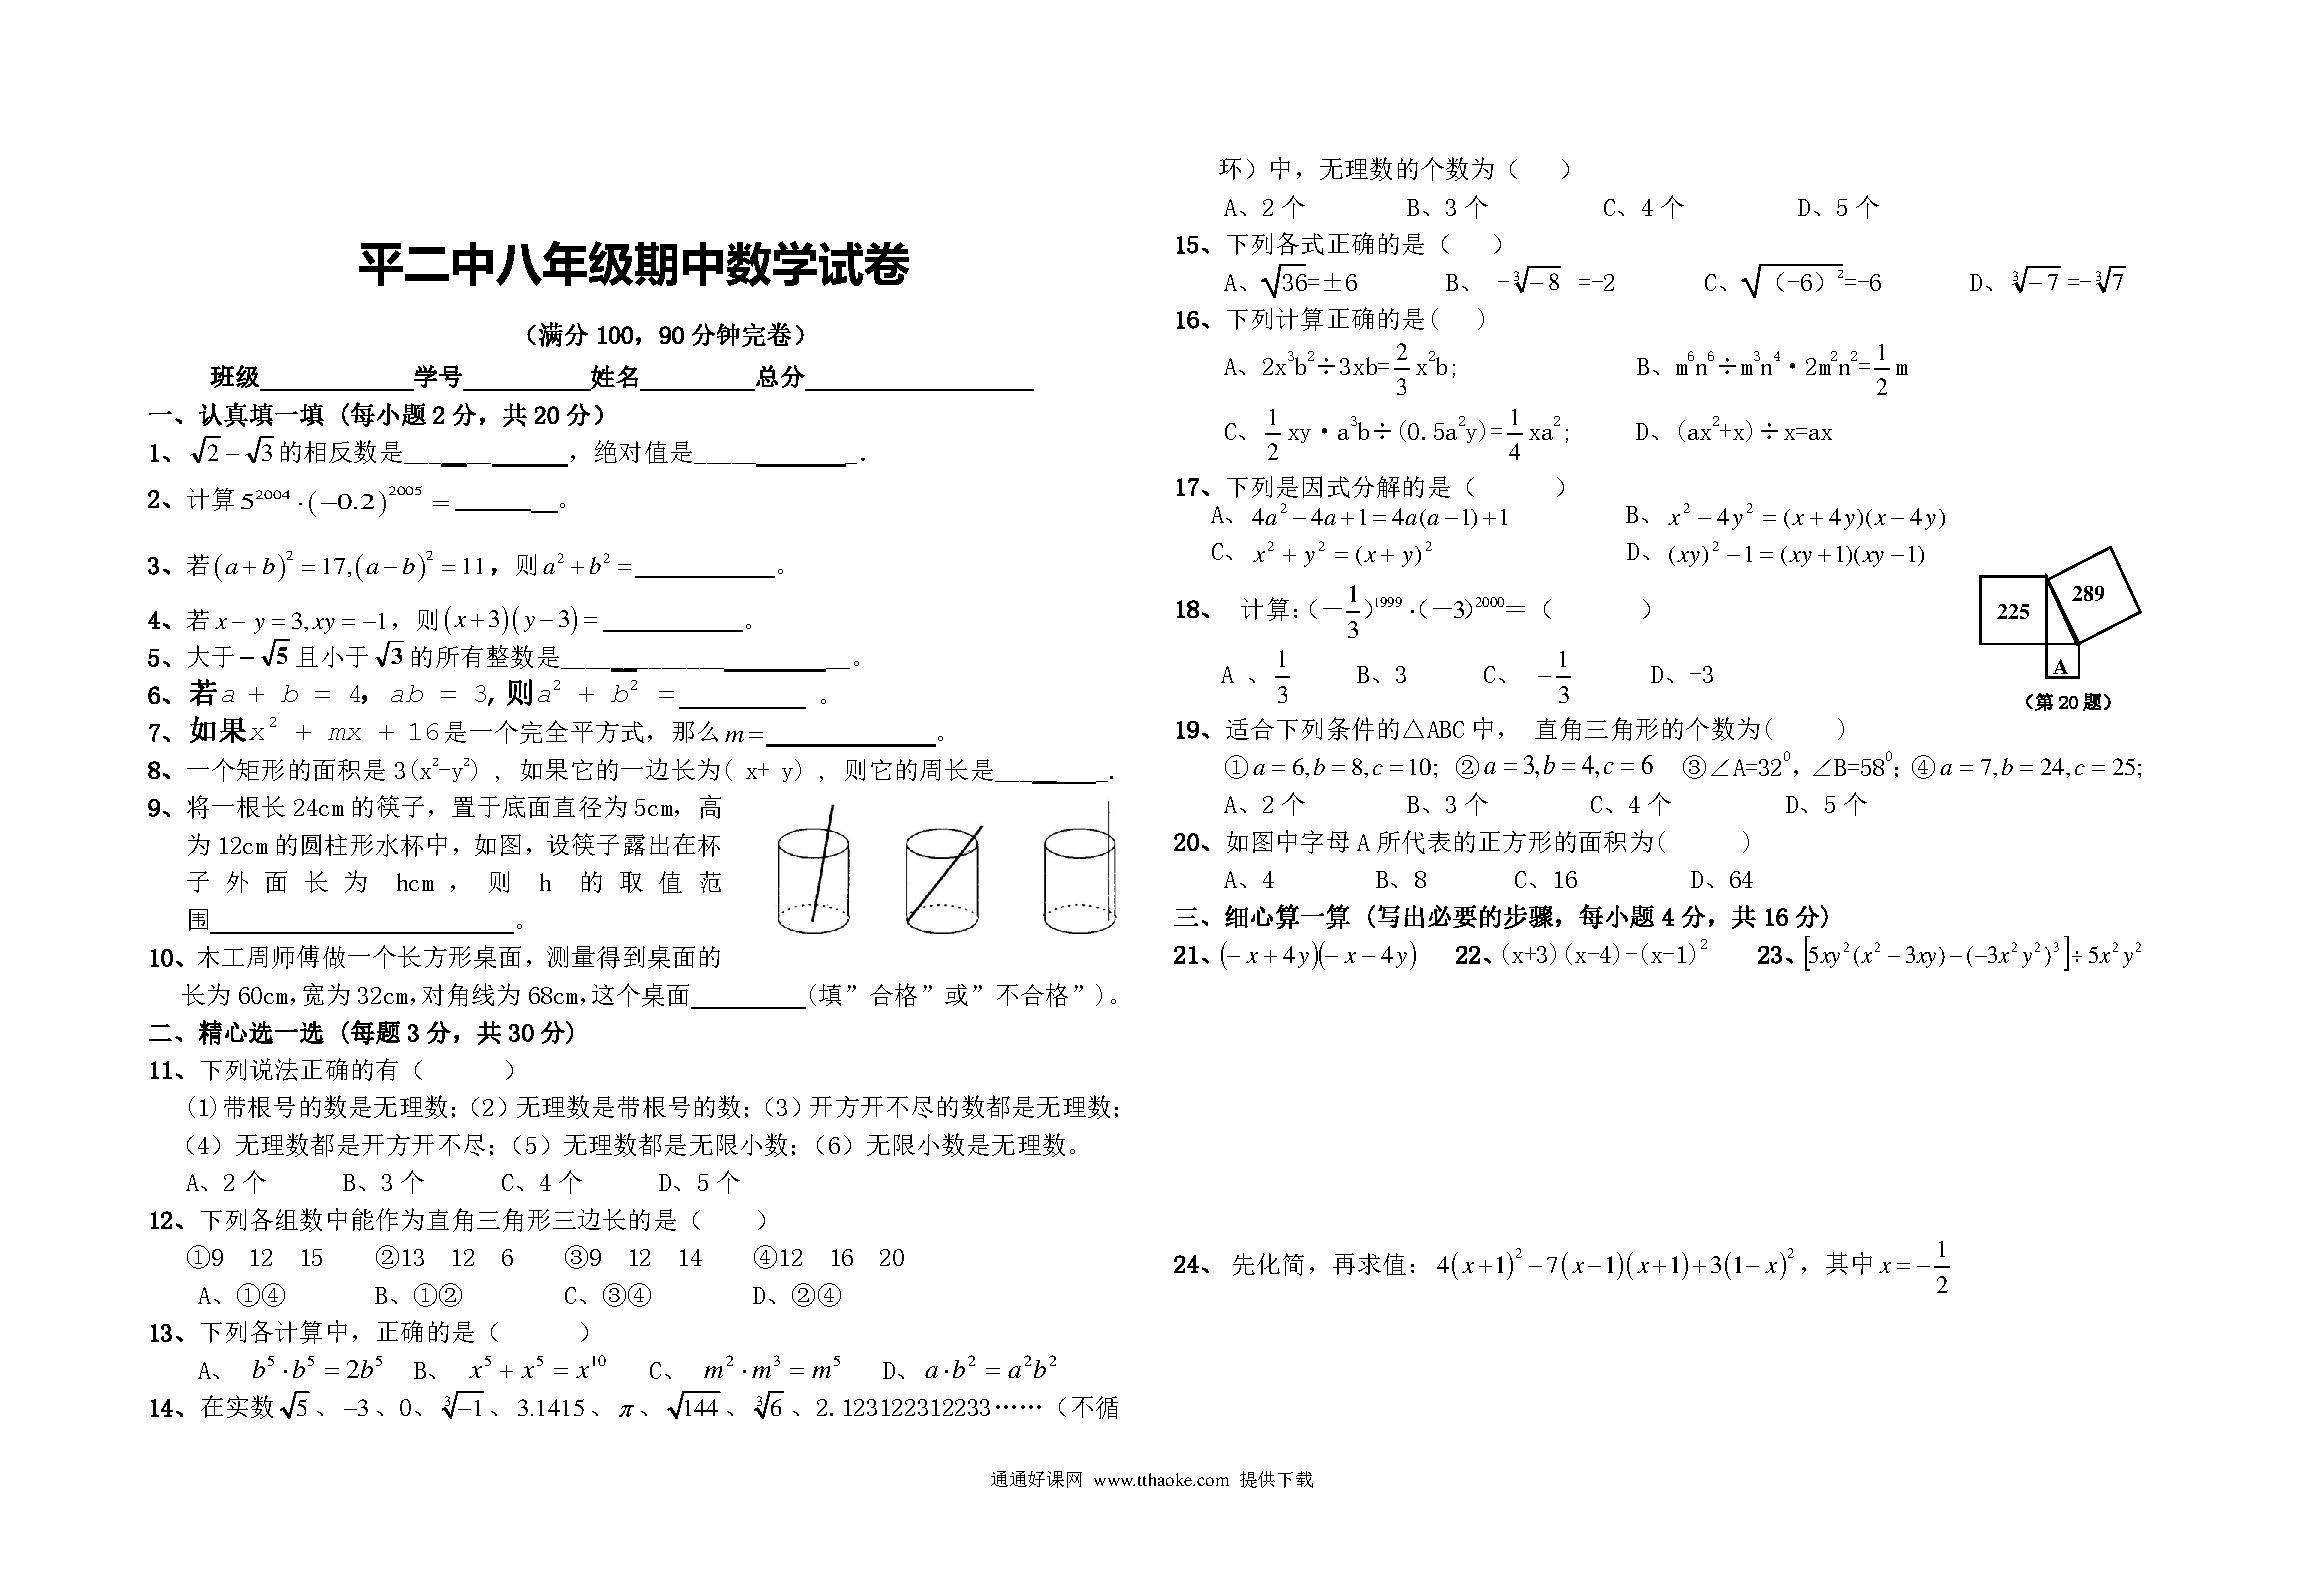 平二中八年级期中数学试卷
（满分 100，90 分钟完卷）
班级____________学号__________姓名_________总分__________________
一、认真填一填 (每小题 2 分，共 20 分）
1、 √2 − √3 的相反数是_____________，绝对值是_____________.
2、计算 5^2004 · (−0.2)^2005 = ________。
3、若 (a+b)^2 = 17, (a−b)^2 = 11，则 a^2 + b^2 = ___________。
4、若 x − y = 3, xy = −1，则 (x+3)(y−3) = ___________。
5、大于 − √5 且小于 √3 的所有整数是_______________________。
6、若 a + b = 4，ab = 3, 则 a^2 + b^2 = __________ 。
7、如果 x^2 + mx + 16 是一个完全平方式，那么 m = _____________。
8、一个矩形的面积是 3(x^2-y^2) , 如果它的一边长为( x+ y) , 则它的周长是_________.
9、将一根长 24cm 的筷子，置于底面直径为 5cm，高
为 12cm 的圆柱形水杯中，如图，设筷子露出在杯
子 外 面 长 为 hcm ， 则 h 的 取 值 范
围________________________。
10、木工周师傅做一个长方形桌面，测量得到桌面的
长为 60cm，宽为 32cm，对角线为 68cm，这个桌面_________(填”合格”或”不合格”)。
二、精心选一选 (每题 3 分，共 30 分)
11、下列说法正确的有（ ）
(1)带根号的数是无理数;（2）无理数是带根号的数;（3）开方开不尽的数都是无理数;
（4）无理数都是开方开不尽;（5）无理数都是无限小数;（6）无限小数是无理数。
A、2 个 B、3 个 C、4 个 D、5 个
12、下列各组数中能作为直角三角形三边长的是（ ）
①9 12 15 ②13 12 6 ③9 12 14 ④12 16 20
A、①④ B、①② C、③④ D、②④
13、下列各计算中，正确的是（ ）
A、 b^5 · b^5 = 2b^5 B、 x^5 + x^5 = x^10 C、 m^2 · m^3 = m^5 D、 a · b^2 = a^2b^2
14、在实数 √5 、−3 、0、∛−1 、3.1415 、π 、√144 、∛6 、2.123122312233……（不循
环）中，无理数的个数为（ ）
A、2 个 B、3 个 C、4 个 D、5 个
15、下列各式正确的是（ ）
A、√36=±6 B、 -∛−8 =-2 C、√（-6）^2=-6 D、∛−7 =-∛7
16、下列计算正确的是( )
A、2x^3b^2÷3xb=2/3 x^2b; B、m^6n^6÷m^3n^4·2m^2n^2=1/2 m
C、1/2 xy·a^3b÷(0.5a^2y)=1/4 xa^2; D、(ax^2+x)÷x=ax
17、下列是因式分解的是（ ）
A、 4a^2 − 4a + 1 = 4a(a − 1) + 1 B、 x^2 − 4y^2 = (x + 4y)(x − 4y)
C、 x^2 + y^2 = (x + y)^2 D、 (xy)^2 − 1 = (xy + 1)(xy − 1)
225
289
A
（第 20 题）
18、 计算:(−1/3)^1999 ·(−3)^2000=（ ）
A 、1/3 B、3 C、 −1/3 D、-3
19、适合下列条件的△ABC 中， 直角三角形的个数为( )
①a = 6, b = 8, c = 10; ②a = 3, b = 4, c = 6 ③∠A=32^0，∠B=58^0; ④a = 7, b = 24, c = 25;
A、2 个 B、3 个 C、4 个 D、5 个
20、如图中字母 A 所代表的正方形的面积为( )
A、4 B、8 C、16 D、64
三、细心算一算 (写出必要的步骤，每小题 4 分，共 16 分)
21、(− x + 4y)(− x − 4y) 22、(x+3)(x-4)-(x-1)^2 23、[5xy^2(x^2 − 3xy) − (−3x^2y^2)^3] ÷ 5x^2y^2
24、 先化简，再求值： 4(x+1)^2 − 7(x−1)(x+1) + 3(1−x)^2，其中 x = −1/2
通通好课网 www.tthaoke.com 提供下载